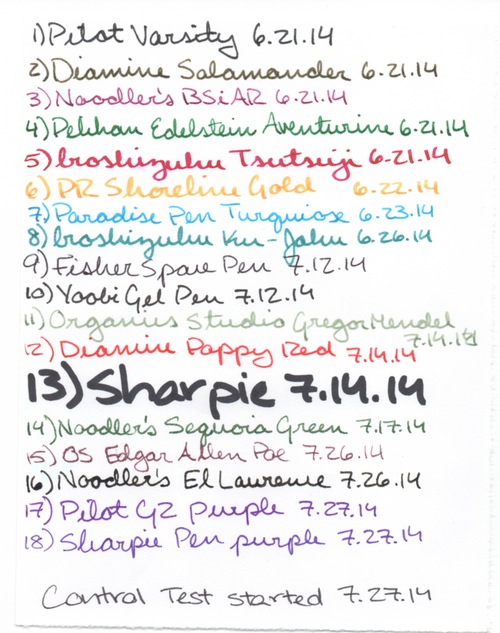 1) Pilot Varsity 6.21.14
2) Diamine Salamander 6.21.14
3) Noodler's BSiAR 6.21.14
4) Pelikan Edelstein Aventurine 6.21.14
5) Iroshizuku Tsutsuji 6.21.14
6) PR Shoreline Gold 6.22.14
7) Paradise Pen Turquoise 6.23.14
8) Iroshizuku Ku-Jaku 6.26.14
9) Fisher Space Pen 7.12.14
10) Yoobi Gel Pen 7.12.14
11) Organics Studio Gregor Mendel
7.14.14
12) Diamine Poppy Red 7.14.14
13) Sharpie 7.14.14
14) Noodler's Sequoia Green 7.17.14
15) OS Edgar Allen Poe 7.26.14
16) Noodler's El Lawrence 7.26.14
17) Pilot G2 purple 7.27.14
18) Sharpie Pen purple 7.27.14
Control Test started 7.27.14